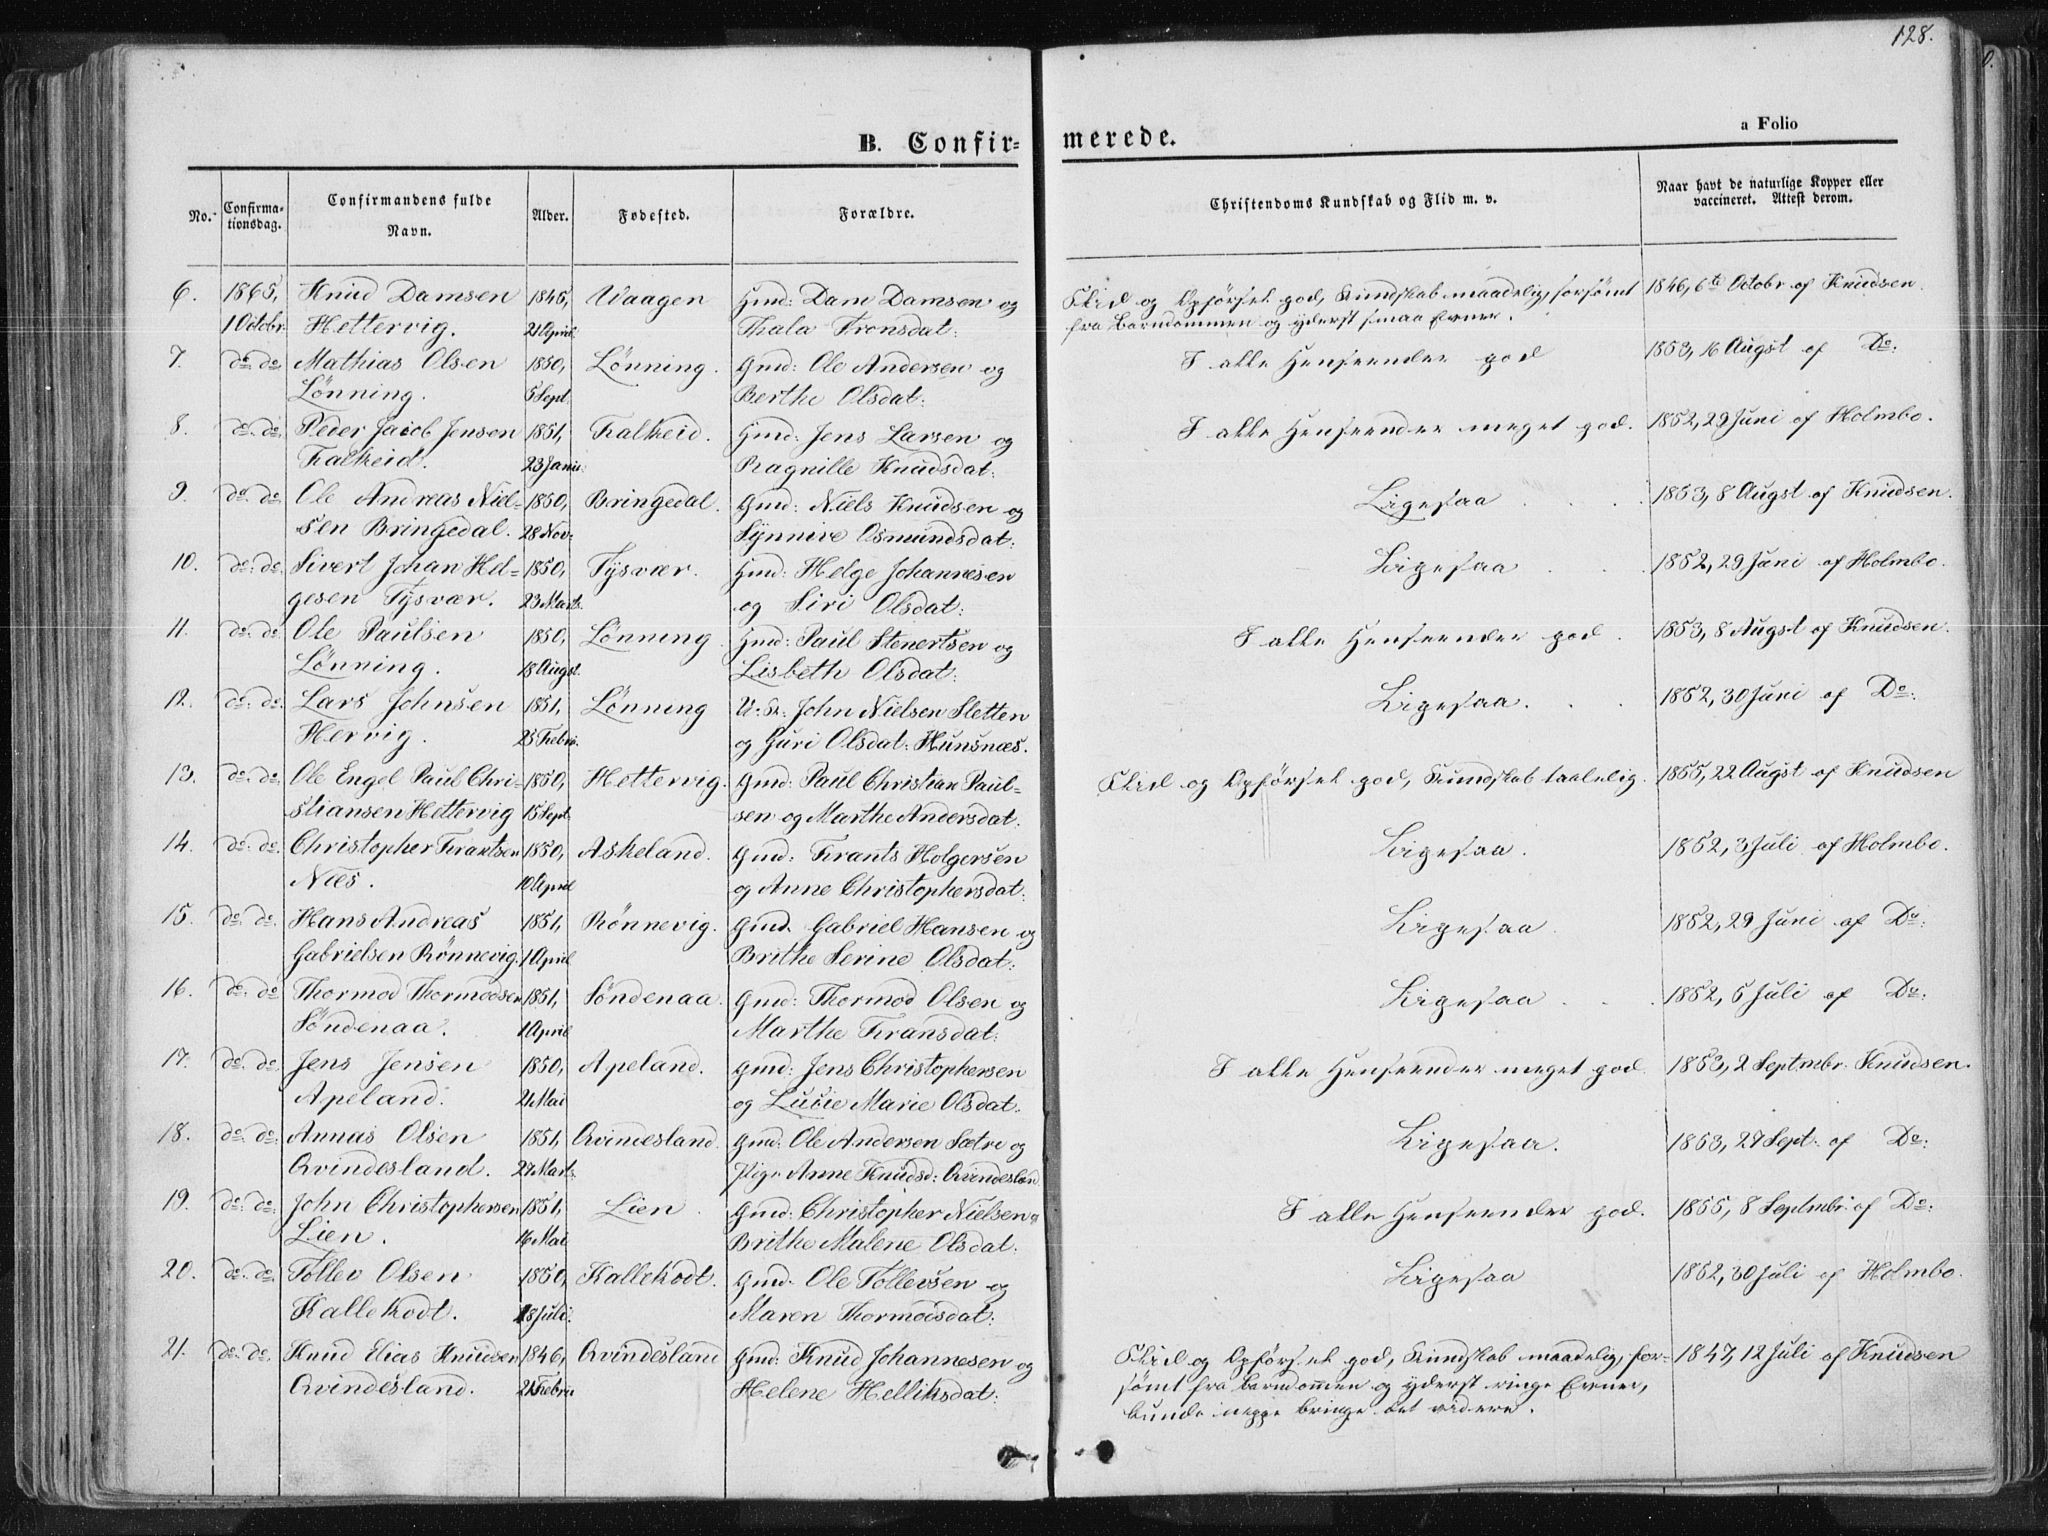 128.
B. Confir=
merede.
a Folio
No. Confirma- Confirmandens fulde Alder. Fødested. Forældre. Christendoms Kundskab og Flid m. v. Naar havt de naturlige Kopper eller
tionsdag. Navn. vaccineret. Attest derom.
6. 1865, Knud Damsen 1845, Vaagen Gmd: Dam Damsen og Flid og Opførsel god, Kundskab maadelig, forsømt 1846, 6te Octobr af Knudsen.
1 Octobr Hettervig. 21 April Thala Tronsdat: fra Barndommen og yderst smaa Evner.
7. do do Mathias Olsen 1850, Lønning. Gmd: Ole Andersen og I alle Henseender god 1853, 16 Augst af Do:
Lønning. 5 Sept. Berthe Olsdat:
8. do. do. Peder Jacob Jensen 1851, Falkeid. Gmd: Jens Larsen og I alle Henseender meget god. 1852, 29 Juni af Holmbo.
Falkeid. 23 Janu: Ragnille Knudsdat:
9. do. do. Ole Andreas Niel- 1850, Bringedal. Gmd: Niels Knudsen og Ligesaa 1853, 8 Augst af Knudsen.
sen Bringedal. 28 Nov: Synnive Osmundsdat:
10. do. do. Sivert Johan Hel- 1850, Tysvær. Gmd: Helge Johannesen Ligesaa 1852, 29 Juni af Holmbo.
gesen Tysvær. 23 Marts. og Siri Olsdat:
11. do. do. Ole Paulsen 1850, Lønning. Gmd: Paul Stenertsen og I alle Henseender god. 1853, 8 Augst af Knudsen.
Lønning. 18 Augst. Lisbeth Olsdat:
12. do. do. Lars Johnsen 1851, Lønning U: K: John Nielsen Sletten Ligesaa. 1852, 30 Juni af Do:
Hervig. 25 Febru. og Guri Olsdat: Hunsnæs.
13. do. do. Ole Engel Paul Chri- 1850, Hettervig. Gmd: Paul Christian Paul- Flid og Opførsel god, Kundskab taalelig. 1855, 22 Augst af Knudsen
stiansen Hettervig 15 Sept. sen og Marthe Andersdat:
14. do. do. Christopher Frantsen 1850, Askeland. Gmd: Frants Holgersen Ligesaa. 1852, 3 Juli af Holmbo.
Næs. 10 April og Anne Christophersdat:
15. do. do. Hans Andreas 1851, Rønnevig. Gmd. Gabriel Hansen og Ligesaa. 1852, 29 Juni af Do:
Gabrielsen Rønnevig. 1 April Brithe Serine Olsdat:
16. do. do Thormod Thormodsen 1851, Søndenaa. Gmd: Thormod Olsen og Ligesaa 1852, 5 Juli af Do:
Søndenaa. 1 April Marthe Fransdat:
17. do. do. Jens Jensen 1850, Apeland. Gmd: Jens Christophersen I alle Henseender meget god. 1853, 2 Septmbr. Knudsen.
Apeland. 21 Mai og Lucie Marie Olsdat:
18. do. do. Annas Olsen 1851, Qvindesland. Gmd: Ole Andersen Sætre og Ligesaa. 1853, 27 Sept: af Do:
Qvindesland. 27 Marts. Pige Anne Knudsd: Qvindesland.
19. do. do. John Christophersen 1851, Lien. Gmd: Christopher Nielsen og I alle Henseender god. 1855, 8 Septmbr. af Do:
Lien. 16 Mai Brithe Malene Olsdat:
20. do. do Tollev Olsen 1850, Kallekodt. Gmd. Ole Tollevsen og Ligesaa 1852, 30 Juli af Holmbo.
Kallekodt. 18 Juli. Maren Thormodsdat:
21. do. do. Knud Elias Knudsen 1846, Qvindesland Gmd: Knud Johannesen og Flid og Opførsel god, Kundskab maadelig, for- 1847, 12 Juli af Knudsen
Qvindesland. 21 Febru Helene Helliksdat: sømt fra Barndommen og yderst ringe Evner,
kunde neppe bringe det videre.